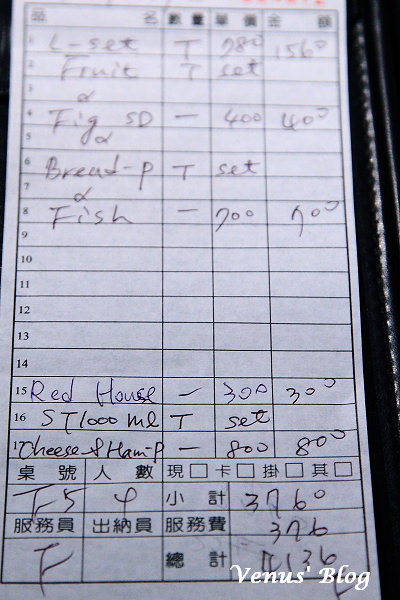 品 名 數 量 單 價 金 額
1 L-set T 780 1560
2 Fruit T set
3 α
4 Fig SD — 400 400
5 α
6 Bread-P T set
7 α
8 Fish — 700 700
9
10
11
12
13
14
15 Red House — 300 300
16 ST1000 ml T set
17 Cheese & Ham-P — 800 800
桌 號 人 數 現 □ 卡 □ 掛 □ 其 □
F5 4 小 計 3760
服務員 出納員 服務費 376
F 總 計 4136
Venus' Blog